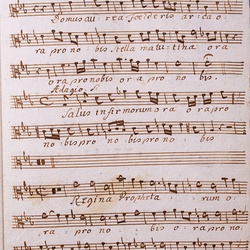 Domus au: rea foederis ar: ca o:
ra pro no: bis Stella matu: tina ora
ora pro nobis ora pro no: bis.
Adagio. S.
Salus infirmorum ora o ra pro
no: bis pro no: bis pro no: bis
Regina Propheta: rum o:
ra: pro no: bis o: ra pro no: